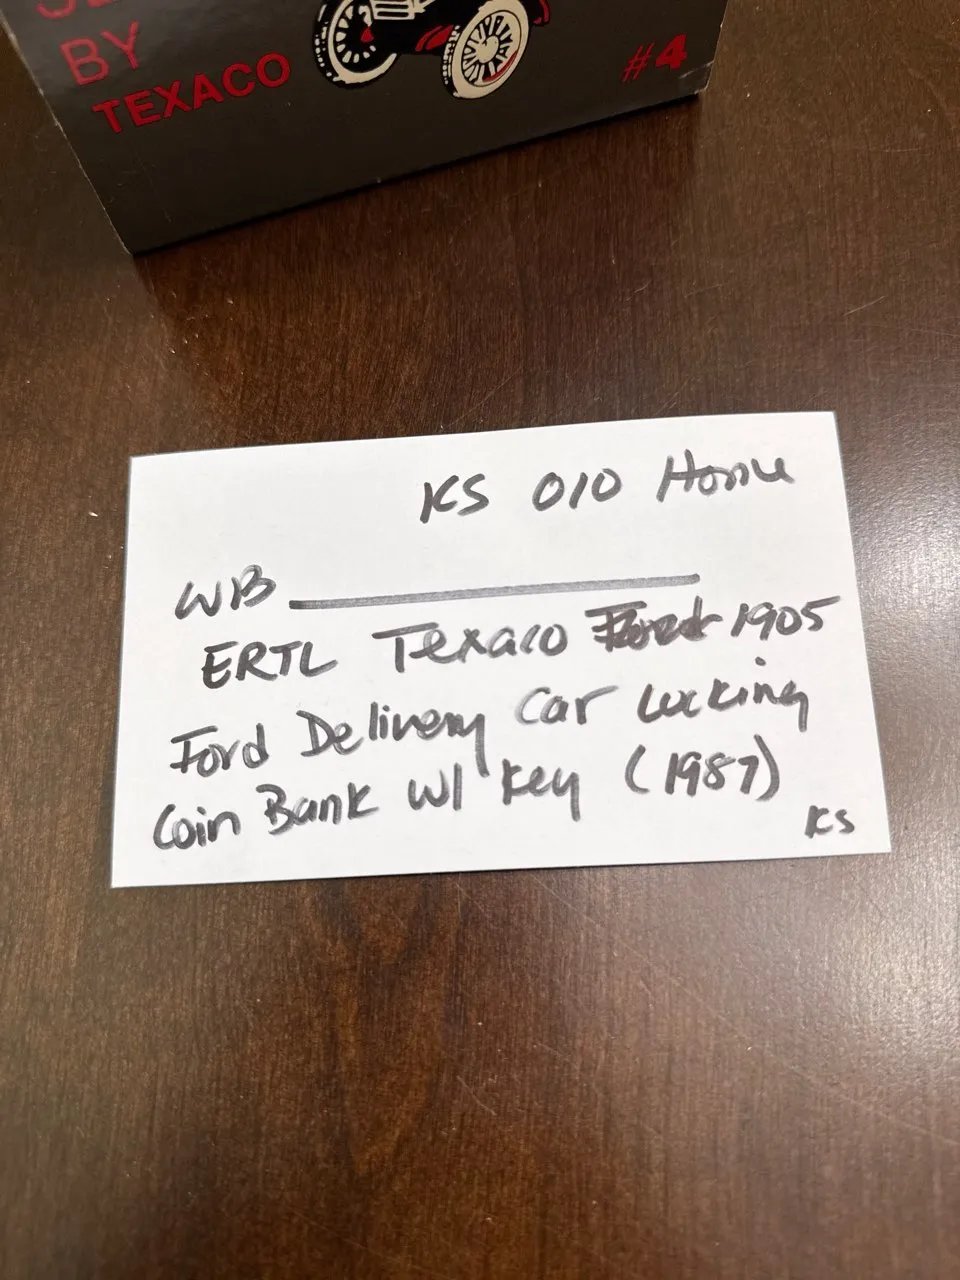 BY
TEXACO
#4
KS 010 Home
WB
ERTL Texaco Ford 1905
Ford Delivery Car Locking
Coin Bank W/ Key (1987)
KS